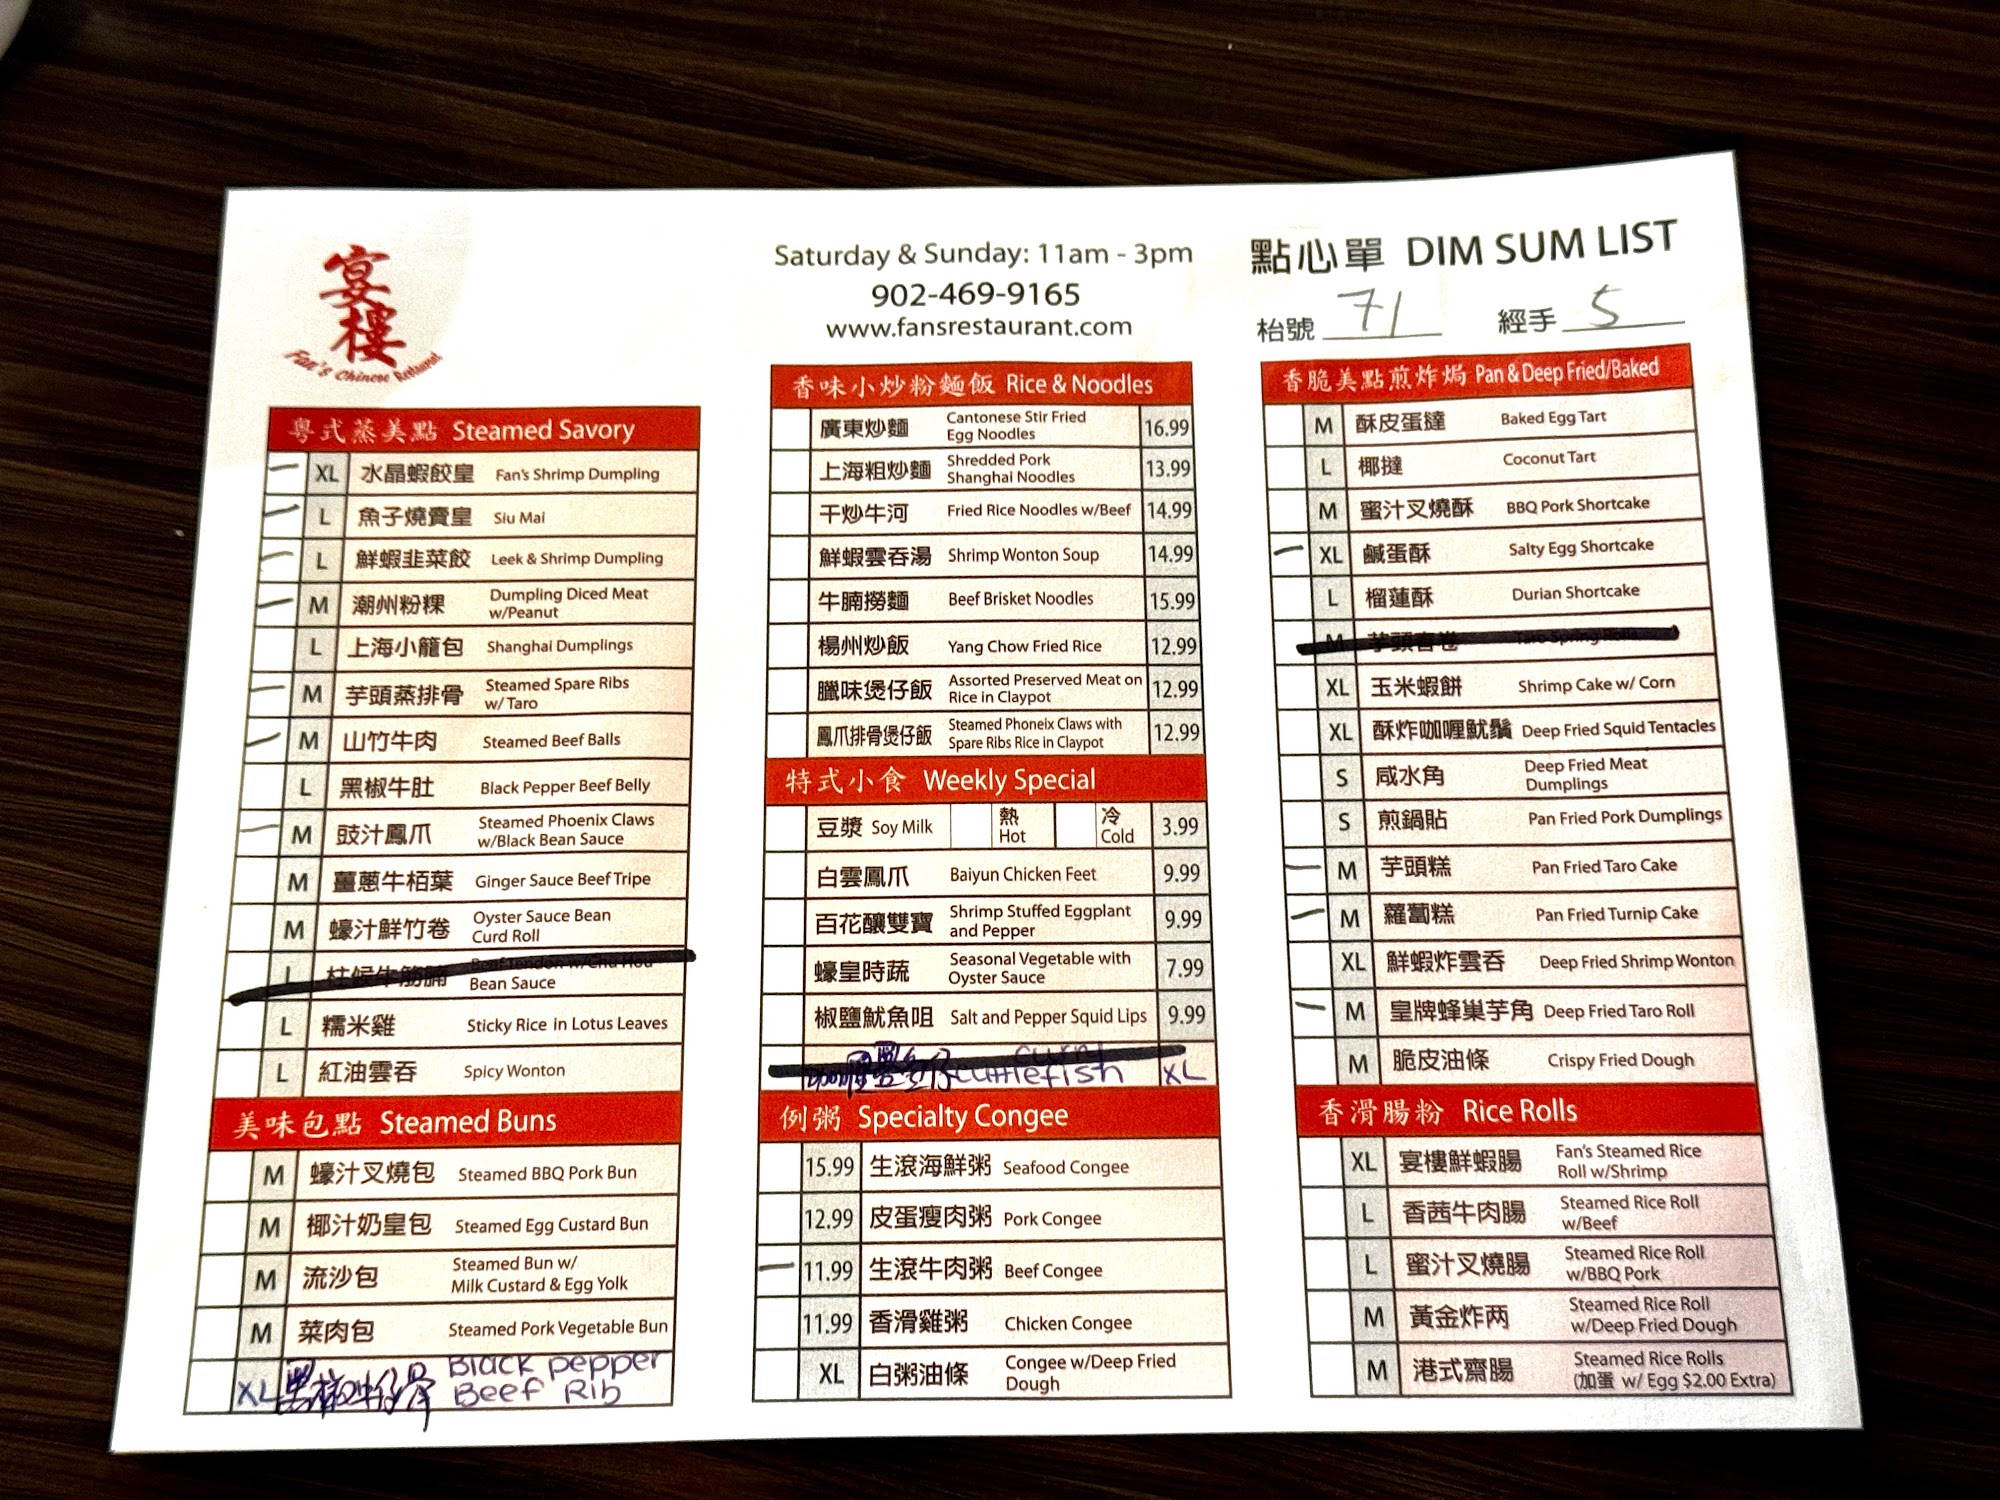 宴樓
Fan's Chinese Restaurant
Saturday & Sunday: 11am - 3pm
902-469-9165
www.fansrestaurant.com
點心單 DIM SUM LIST
枱號 71 經手 5
粵式蒸美點 Steamed Savory
XL 水晶蝦餃皇 Fan's Shrimp Dumpling
L 魚子燒賣皇 Siu Mai
L 鮮蝦韭菜餃 Leek & Shrimp Dumpling
M 潮州粉粿 Dumpling Diced Meat
w/Peanut
L 上海小籠包 Shanghai Dumplings
M 芋頭蒸排骨 Steamed Spare Ribs
w/ Taro
M 山竹牛肉 Steamed Beef Balls
L 黑椒牛肚 Black Pepper Beef Belly
M 豉汁鳳爪 Steamed Phoenix Claws
w/Black Bean Sauce
M 薑蔥牛栢葉 Ginger Sauce Beef Tripe
M 蠔汁鮮竹卷 Oyster Sauce Bean
Curd Roll
L 柱候牛筋腩 Beef Tendon w/Chu Hou
Bean Sauce
L 糯米雞 Sticky Rice in Lotus Leaves
L 紅油雲吞 Spicy Wonton
美味包點 Steamed Buns
M 蠔汁叉燒包 Steamed BBQ Pork Bun
M 椰汁奶皇包 Steamed Egg Custard Bun
M 流沙包 Steamed Bun w/
Milk Custard & Egg Yolk
M 菜肉包 Steamed Pork Vegetable Bun
XL 黑椒牛仔骨 Black pepper
Beef Rib
香味小炒粉麵飯 Rice & Noodles
廣東炒麵 Cantonese Stir Fried
Egg Noodles 16.99
上海粗炒麵 Shredded Pork
Shanghai Noodles 13.99
干炒牛河 Fried Rice Noodles w/Beef 14.99
鮮蝦雲吞湯 Shrimp Wonton Soup 14.99
牛腩撈麵 Beef Brisket Noodles 15.99
楊州炒飯 Yang Chow Fried Rice 12.99
臘味煲仔飯 Assorted Preserved Meat on
Rice in Claypot 12.99
鳳爪排骨煲仔飯 Steamed Phoneix Claws with
Spare Ribs Rice in Claypot 12.99
特式小食 Weekly Special
豆漿 Soy Milk 熱 Hot 冷 Cold 3.99
白雲鳳爪 Baiyun Chicken Feet 9.99
百花釀雙寶 Shrimp Stuffed Eggplant
and Pepper 9.99
蠔皇時蔬 Seasonal Vegetable with
Oyster Sauce 7.99
椒鹽魷魚咀 Salt and Pepper Squid Lips 9.99
curry
cuttlefish XL
例粥 Specialty Congee
15.99 生滾海鮮粥 Seafood Congee
12.99 皮蛋瘦肉粥 Pork Congee
11.99 生滾牛肉粥 Beef Congee
11.99 香滑雞粥 Chicken Congee
XL 白粥油條 Congee w/Deep Fried
Dough
香脆美點煎炸焗 Pan & Deep Fried/Baked
M 酥皮蛋撻 Baked Egg Tart
L 椰撻 Coconut Tart
M 蜜汁叉燒酥 BBQ Pork Shortcake
XL 鹹蛋酥 Salty Egg Shortcake
L 榴蓮酥 Durian Shortcake
M 芋頭春卷 Taro Spring Rolls
XL 玉米蝦餅 Shrimp Cake w/ Corn
XL 酥炸咖喱魷鬚 Deep Fried Squid Tentacles
S 咸水角 Deep Fried Meat
Dumplings
S 煎鍋貼 Pan Fried Pork Dumplings
M 芋頭糕 Pan Fried Taro Cake
M 蘿蔔糕 Pan Fried Turnip Cake
XL 鮮蝦炸雲吞 Deep Fried Shrimp Wonton
M 皇牌蜂巢芋角 Deep Fried Taro Roll
M 脆皮油條 Crispy Fried Dough
香滑腸粉 Rice Rolls
XL 宴樓鮮蝦腸 Fan's Steamed Rice
Roll w/Shrimp
L 香茜牛肉腸 Steamed Rice Roll
w/Beef
L 蜜汁叉燒腸 Steamed Rice Roll
w/BBQ Pork
M 黃金炸两 Steamed Rice Roll
w/Deep Fried Dough
M 港式齋腸 Steamed Rice Rolls
(加蛋 w/ Egg $2.00 Extra)